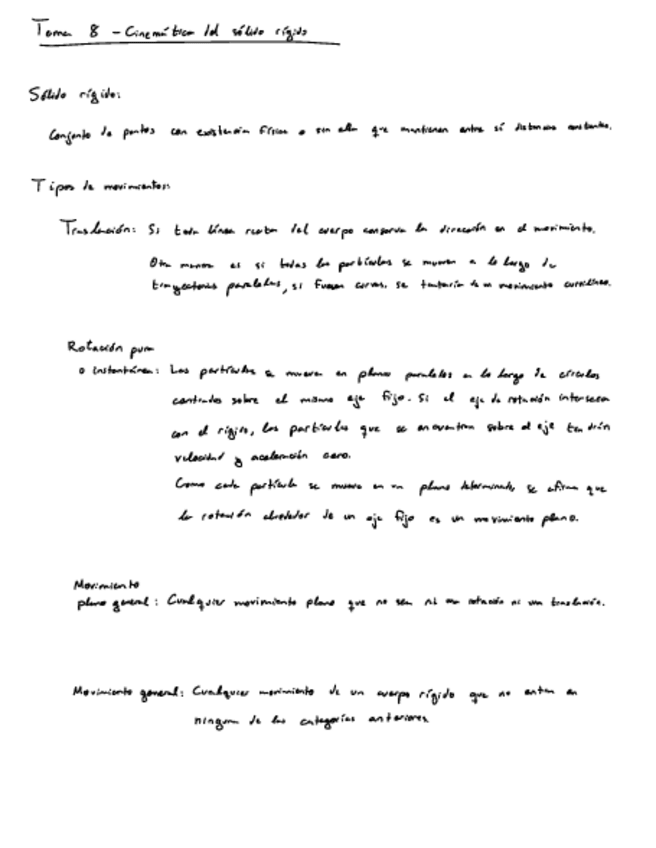 Tema 8 - Cinemática del sólido rígido
Sólido rígido:
Conjunto de puntos con existencia física o sin ella que mantienen entre sí distancias constantes.
Tipos de movimientos:
Traslación: Si toda línea recta del cuerpo conserva la dirección en el movimiento.
Otra manera es si todas las partículas se mueven a lo largo de
trayectorias paralelas, si fueran curvas, se trataría de un movimiento curvilíneo.
Rotación pura
o instantánea: Las partículas se mueven en planos paralelos a lo largo de círculos
centrados sobre el mismo eje fijo. Si el eje de rotación interseca
con el rígido, las partículas que se encuentran sobre el eje tendrán
velocidad y aceleración cero.
Como cada partícula se mueve en un plano determinado, se afirma que
la rotación alrededor de un eje fijo es un movimiento plano.
Movimiento
plano general: Cualquier movimiento plano que no sea ni una rotación ni una traslación.
Movimiento general: Cualquier movimiento de un cuerpo rígido que no entra en
ninguna de las categorías anteriores